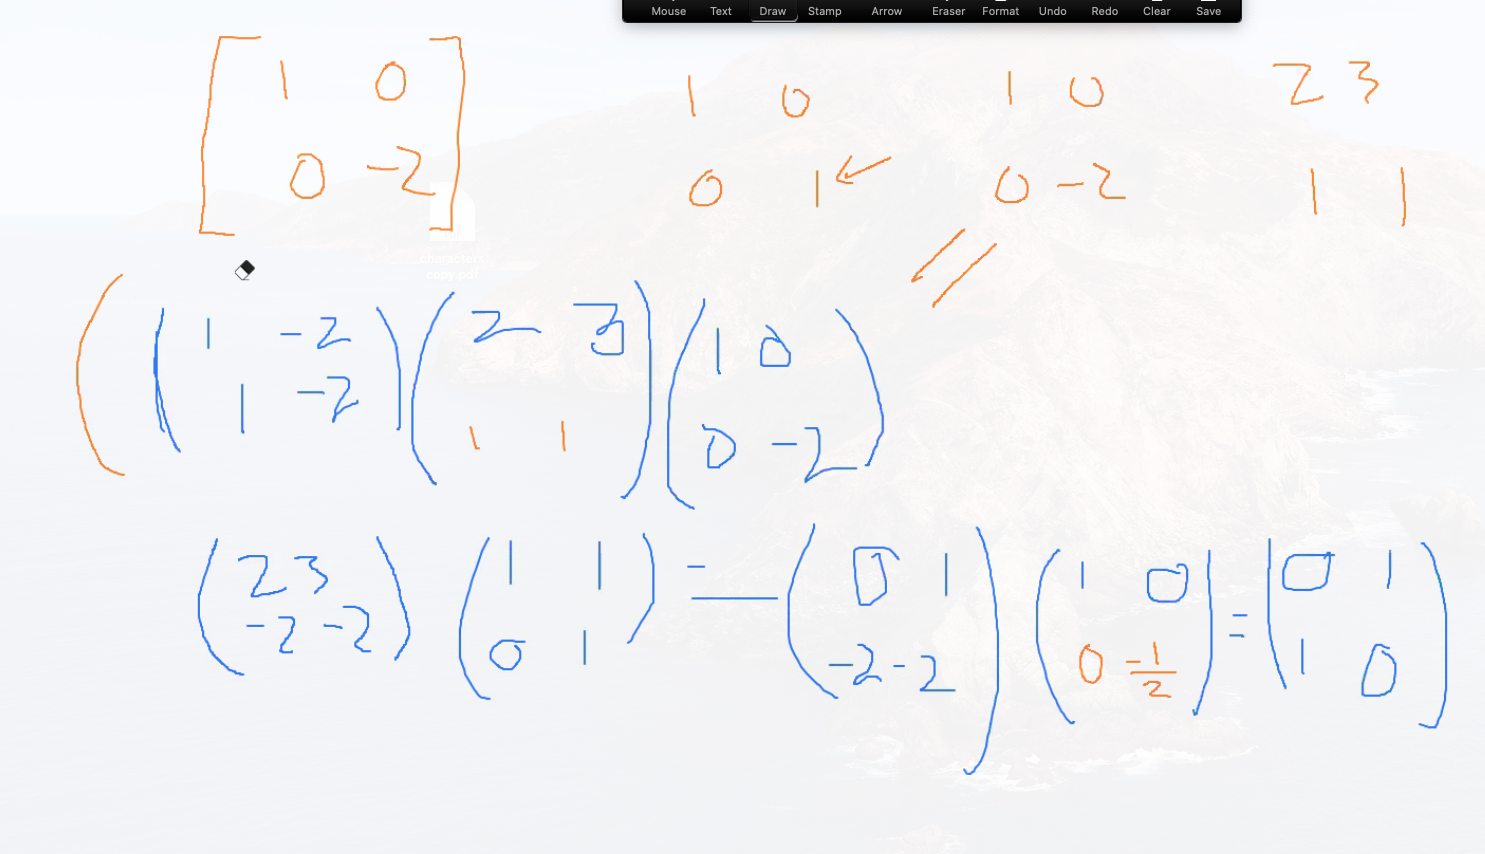 Mouse Text Draw Stamp Arrow Eraser Format Undo Redo Clear Save
[ 1 0 1 0 1 0 2 3
0 -2 ] 0 1 0 -2 1 1
characters
copy.pdf
( ( 1 -2 ) ( 2 3 ) ( 1 0 )
1 -2 1 1 0 -2
( 2 3 ) ( 1 1 ) = ( 0 1 ) ( 1 0 ) = ( 0 1 )
-2 -2 0 1 -2 -2 0 -1/2 1 0